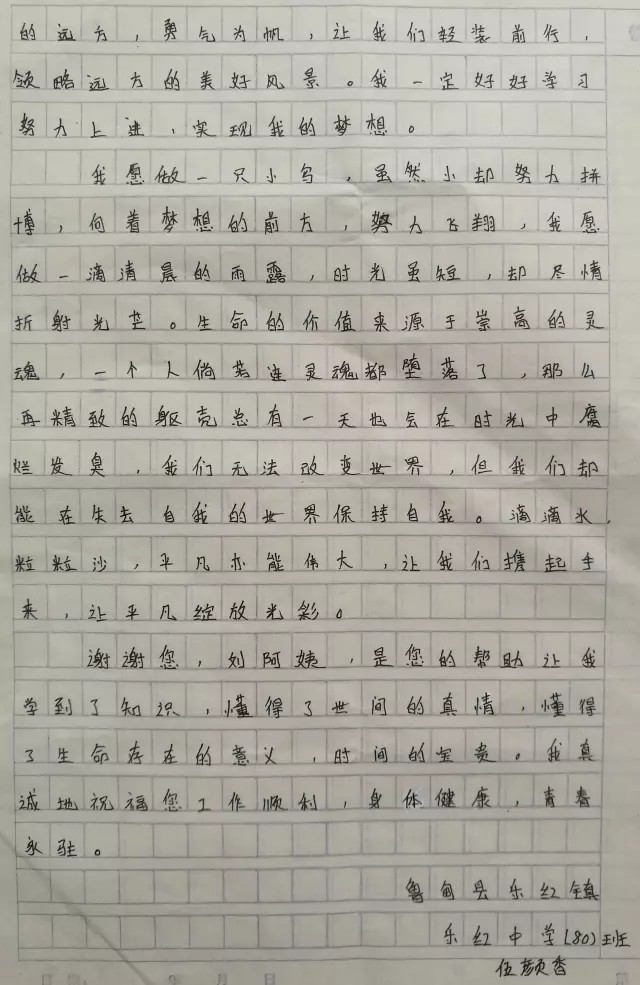 的远方，勇气为帆，让我们轻装前行，
领略远方的美好风景。我一定好好学习
努力上进，实现我的梦想。
我愿做一只小鸟，虽然小却努力拼
博，向着梦想的前方，努力飞翔，我愿
做一滴清晨的雨露，时光虽短，却尽情
折射光芒。生命的价值来源于崇高的灵
魂，一个人倘若连灵魂都堕落了，那么
再精致的躯壳总有一天也会在时光中腐
烂发臭，我们无法改变世界，但我们却
能在失去自我的世界保持自我。滴滴水，
粒粒沙，平凡亦能伟大，让我们携起手
来，让平凡绽放光彩。
谢谢您，刘阿姨，是您的帮助让我
学到了知识，懂得了世间的真情，懂得
了生命存在的意义，时间的宝贵。我真
诚地祝福您工作顺利，身体健康，青春
永驻。
鲁甸县乐红镇
乐红中学(80)班
伍颜香